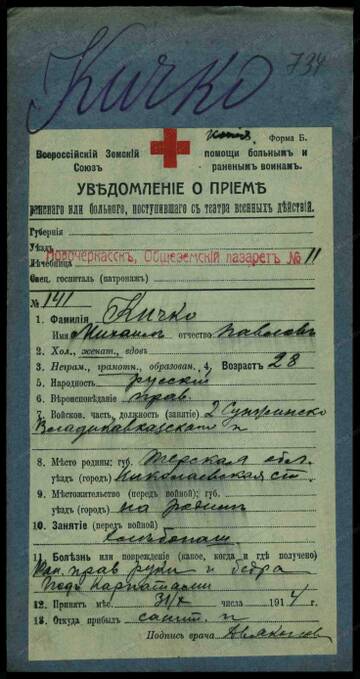 Кичко 734
Форма Б.
Всероссійскій Земскій
Союзъ
помощи больнымъ и
раненымъ воинамъ.
УВѢДОМЛЕНІЕ О ПРІЕМѢ
раненаго или больного, поступившаго съ театра военныхъ дѣйствій.
Губернія
Уѣздъ
Новочеркасскъ, Общеземскій лазаретъ № 11
Лѣчебница
Спец. госпиталь (патронажъ)
№ 141
1. Фамилія Кичко
Имя Михаилъ отчество Павловъ
2. Хол., женат., вдовъ
3. Неграм., грамотн., образован. 4. Возрастъ 28
5. Народность русскій
6. Вѣроисповѣданіе прав.
7. Войсков. часть, должность (занятіе) 2
Владикавказскаго п
8. Мѣсто родины; губ. Терская обл.
уѣздъ (городъ) Николаевская ст.
9. Мѣстожительство (передъ войной); губ.
уѣздъ (городъ) на родинѣ
10. Занятіе (передъ войной)
хлѣбопаш.
11. Болѣзнь или поврежденіе (какое, когда и гдѣ получено)
прав руки и бедра
подъ Карпатами
12. Принятъ мѣс. 31/X числа 1914 г.
13. Откуда прибылъ санит. п
Подпись врача